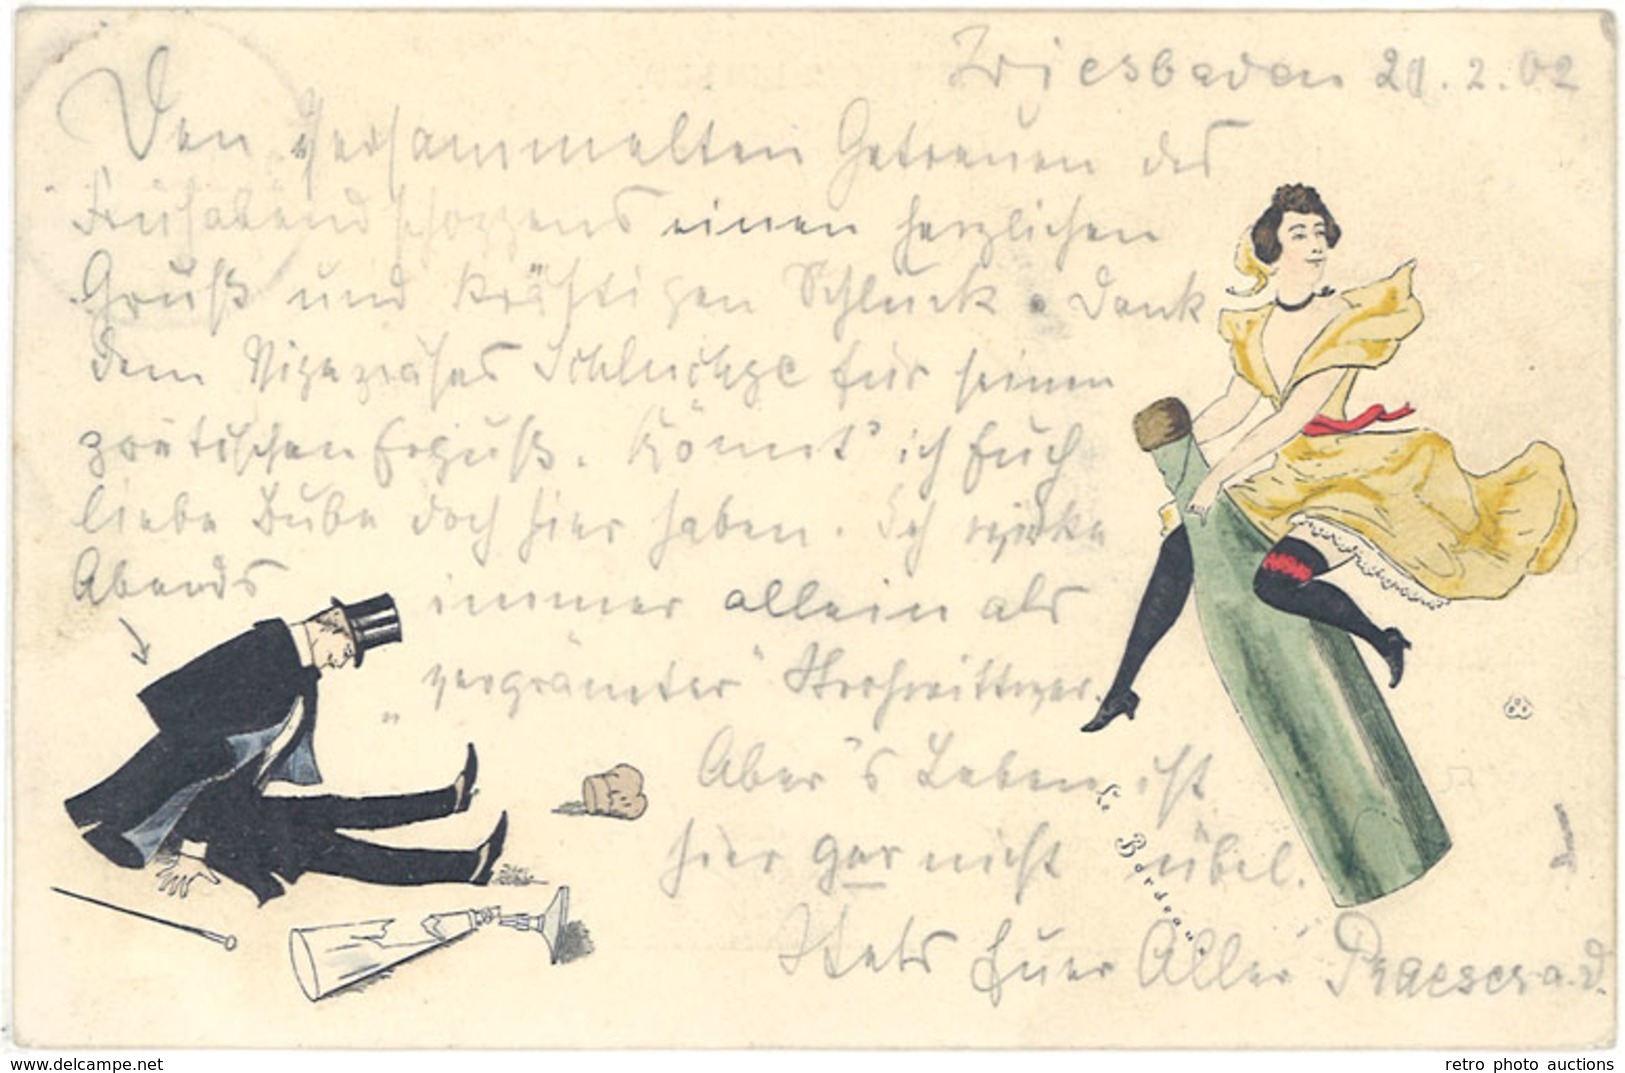 Wiesbaden 21.2.02
Den versammelten Getreuen des
Frühabendschoppens einen herzlichen
Gruß und kräftigen Schluck. Dank
dem Vizepräses Schluckspe für seinen
poetischen Erguß. Könnt' ich Euch
liebe Bube doch hier haben. Ich
Abends immer allein als
„vergrämter"
Aber's Leben ist
hier gar nicht übel.
Stets Euer Aller Praeses a.D.
Le Bordeau
delcampe.net
retro photo auctions